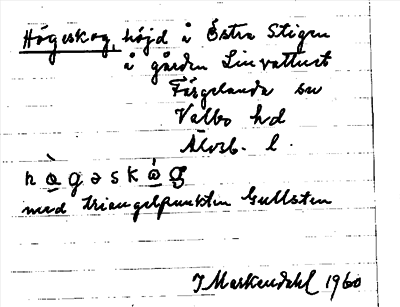 Högeskog, höjd å Östra Stigen
å gården Linvattnet
Färgelanda sn
Valbo hd
Älvsb. l.
h ò̱ g ə s k ȯ̱ g
med triangelpunkten Gullsten
J Markendahl 1960